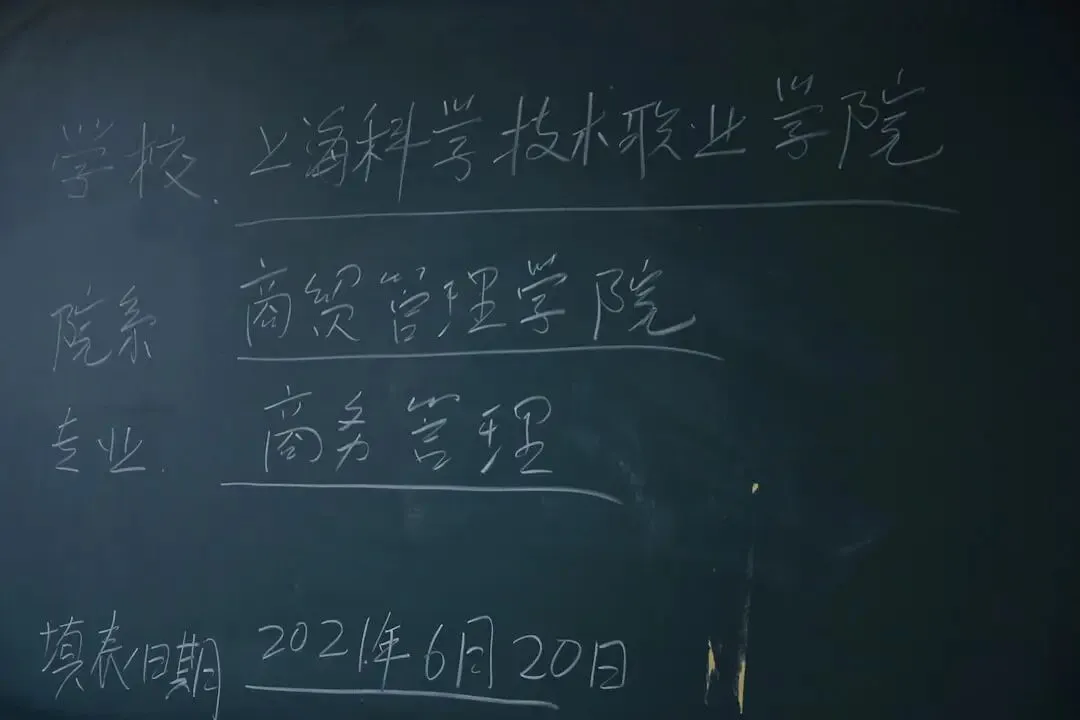 学校. 上海科学技术职业学院
院系 商贸管理学院
专业. 商务管理
填表日期 2021年6月20日